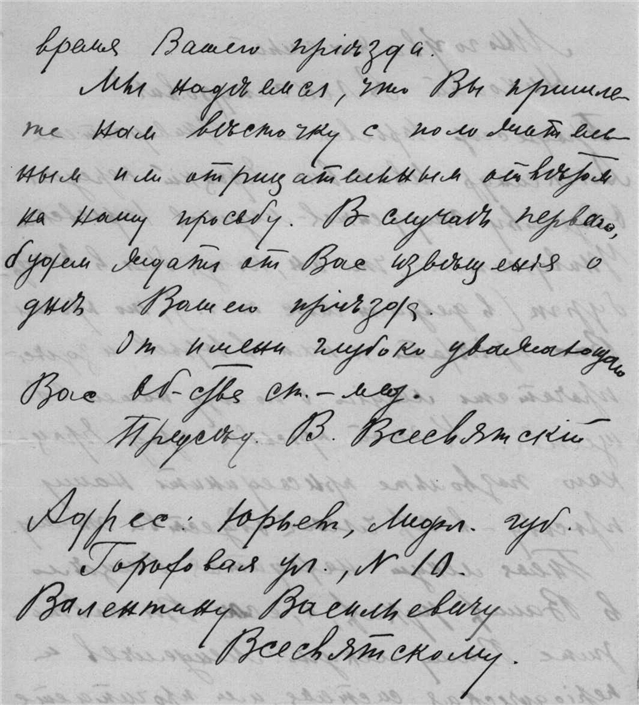 время Вашего пріѣзда.
Мы надѣемся, что Вы пришле-
те нам вѣсточку с положитель-
ным или отрицательным отвѣтом
на нашу просьбу. В случаѣ перваго,
будем ждать от Вас извѣщенія о
днѣ Вашего пріѣзда.
От имени глубоко уважающаго
Вас Об-ства ст.-мед.
Предсѣд. В. Всесвятскій
Адрес: Юрьев, Лифл. губ.
Гороховая ул., N 10.
Валентину Васильевичу
Всесвятскому.